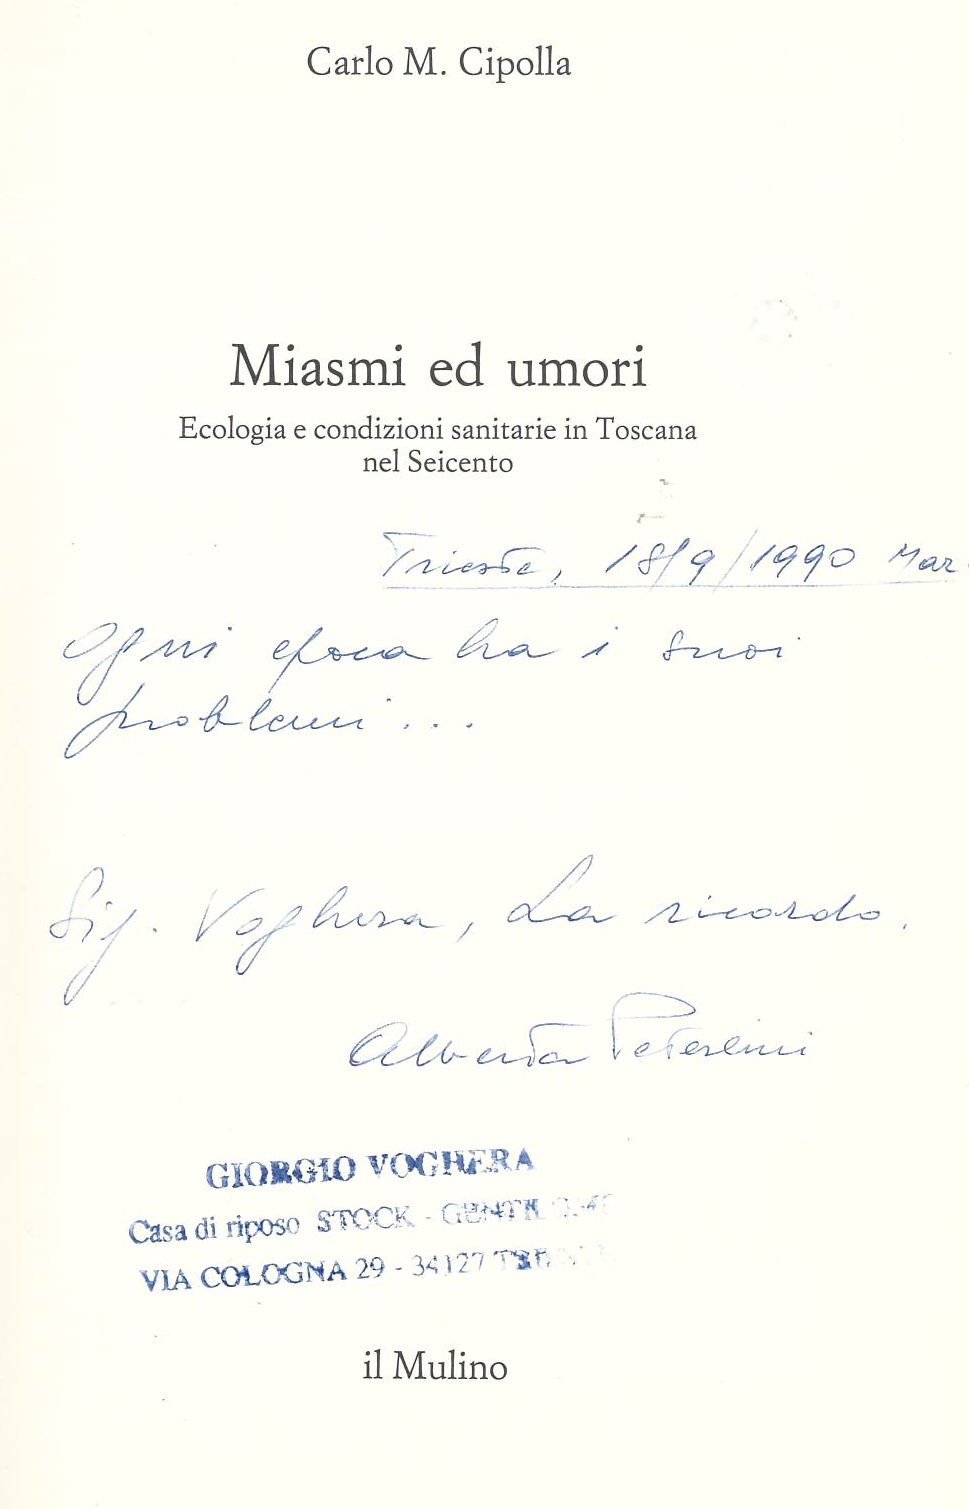 Carlo M. Cipolla
Miasmi ed umori
Ecologia e condizioni sanitarie in Toscana
nel Seicento
Trieste, 18/9/1990 Mar.
Ogni epoca ha i suoi
problemi...
Sig. Voghera, La ricordo.
Alberta
GIORGIO VOGHERA
Casa di riposo STOCK -
VIA COLOGNA 29 - 34127
il Mulino